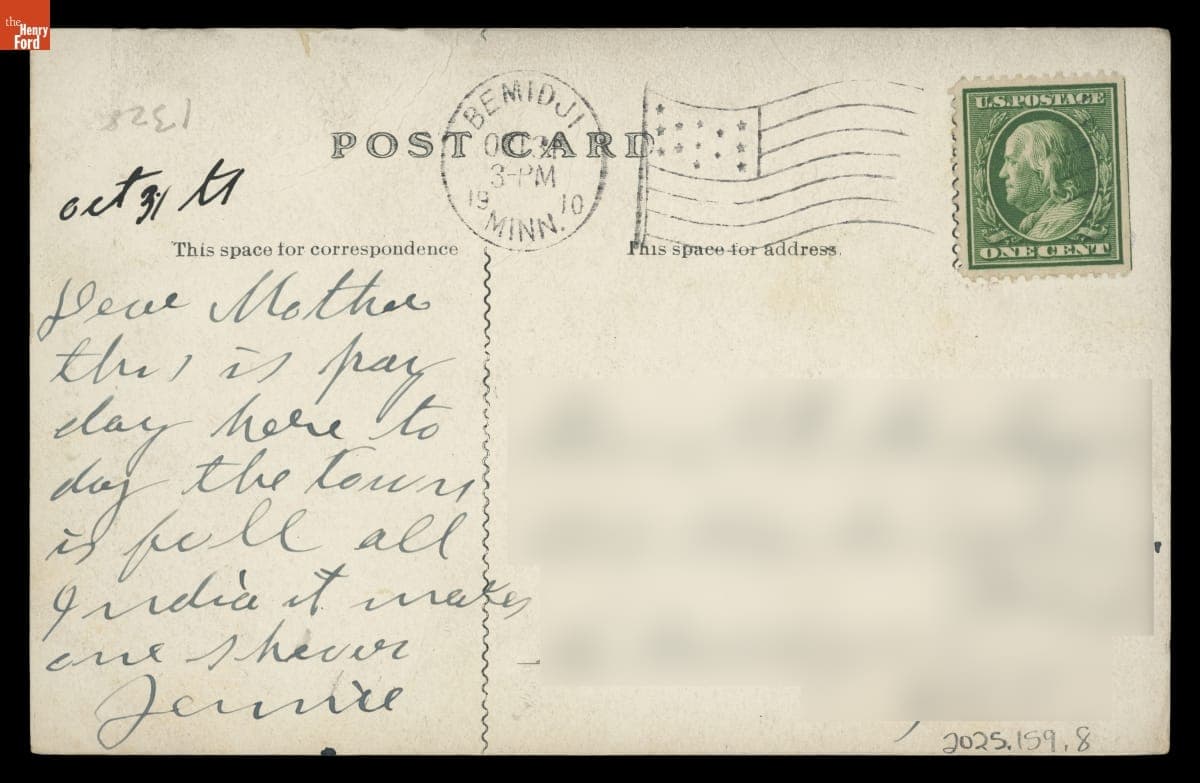 the
Henry
Ford
1328
POST CARD
BEMIDJI
OCT 31
3-PM
19 10
MINN.
U.S. POSTAGE
ONE CENT
oct 31 st
This space for correspondence
This space for address.
Dear Mother
this is pay
day here to
day the town
is full all
India it makes
one shever
Jennie
2025.159.8